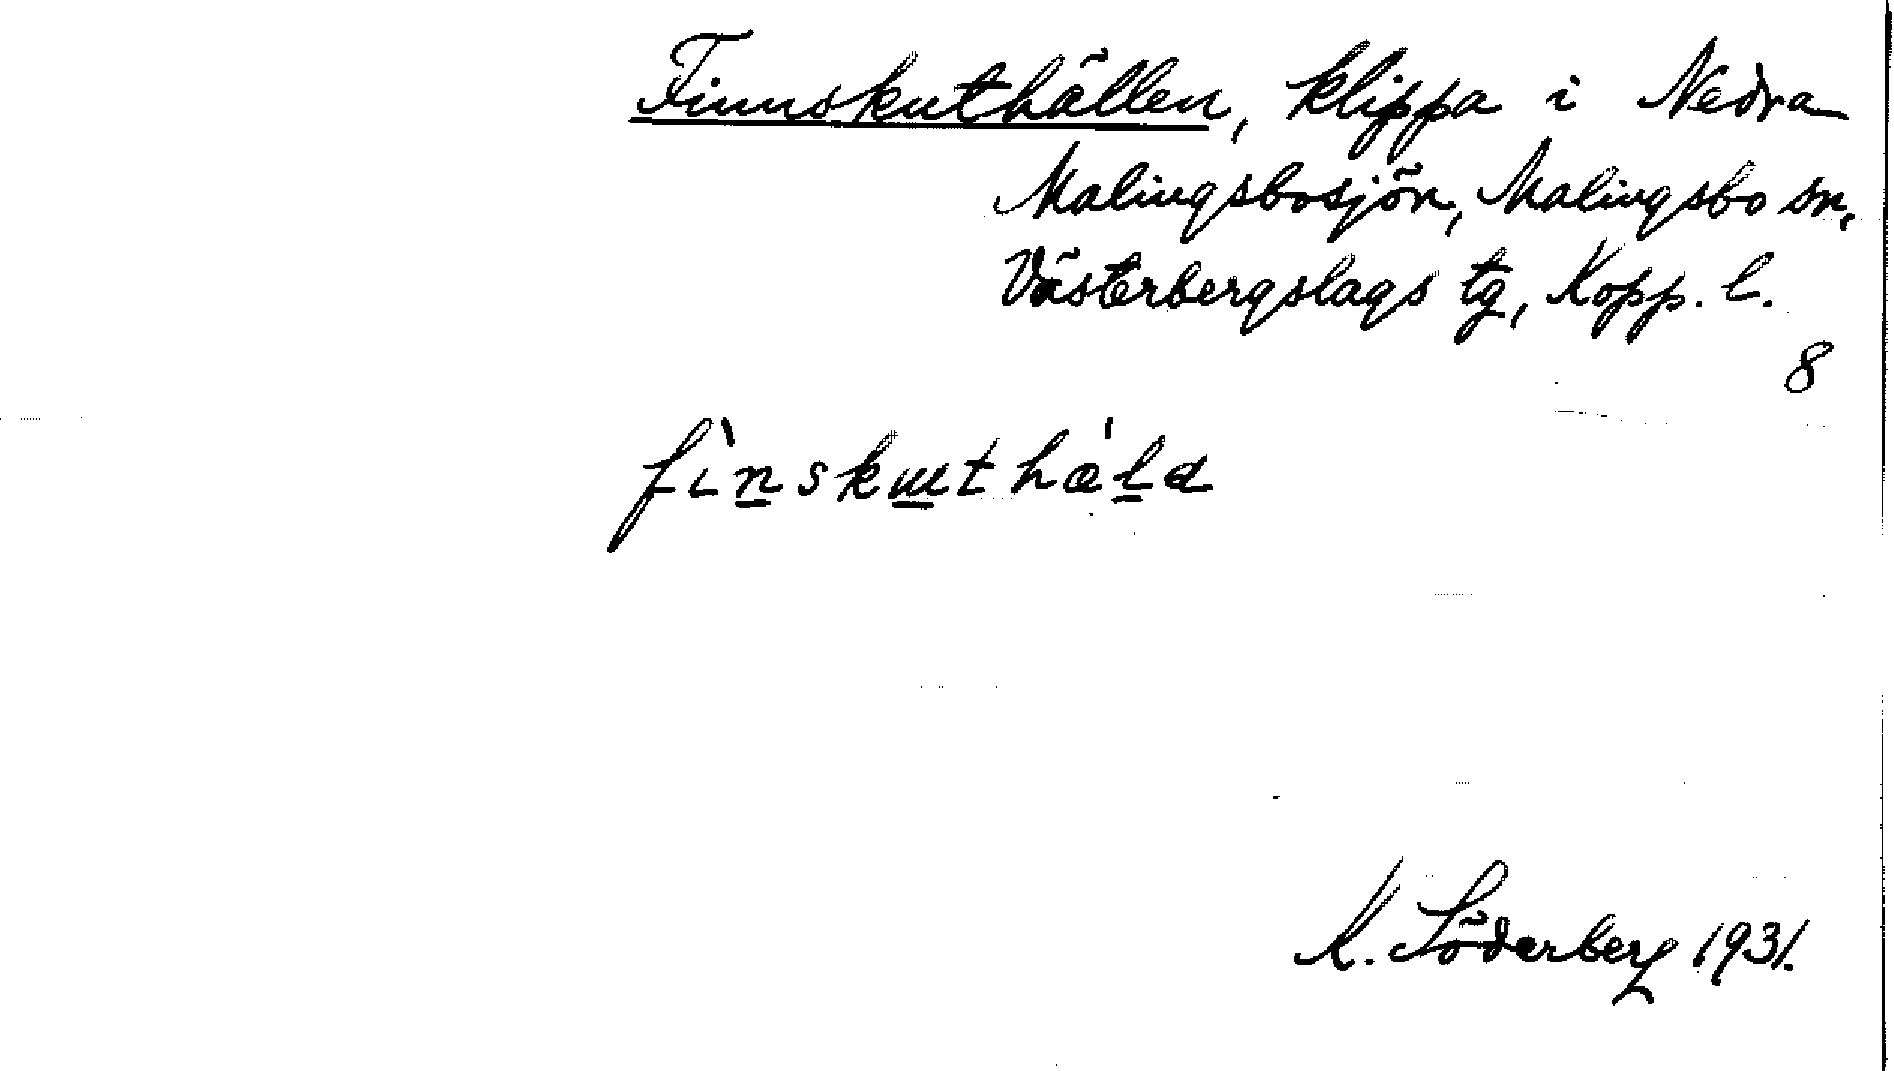 Finnskuthällen, klippa i Nedra
Malingsbosjön, Malingsbo sn,
Västerbergslags tg, Kopp. l.
8
K. Söderberg 1931.